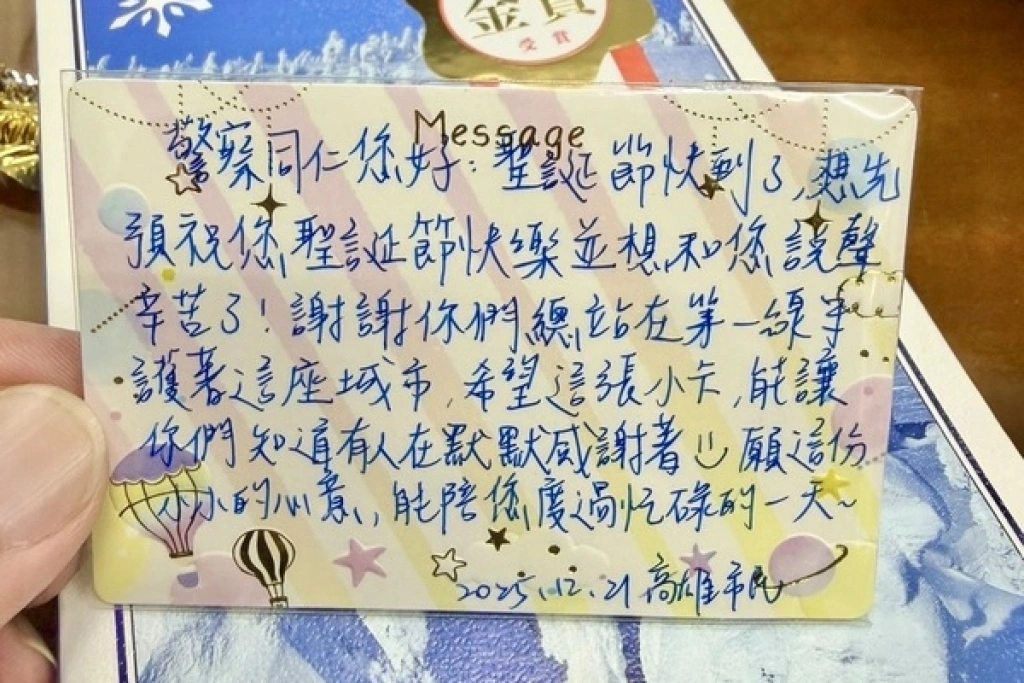 金賞
受賞
Message
警察同仁您好：聖誕節快到了,想先
預祝您聖誕節快樂並想和您說聲
辛苦了！謝謝你們總站在第一線守
護著這座城市,希望這張小卡,能讓
你們知道有人在默默感謝著☺願這份
小小的心意,能陪您度過忙碌的一天~
2025.12.21 高雄市民